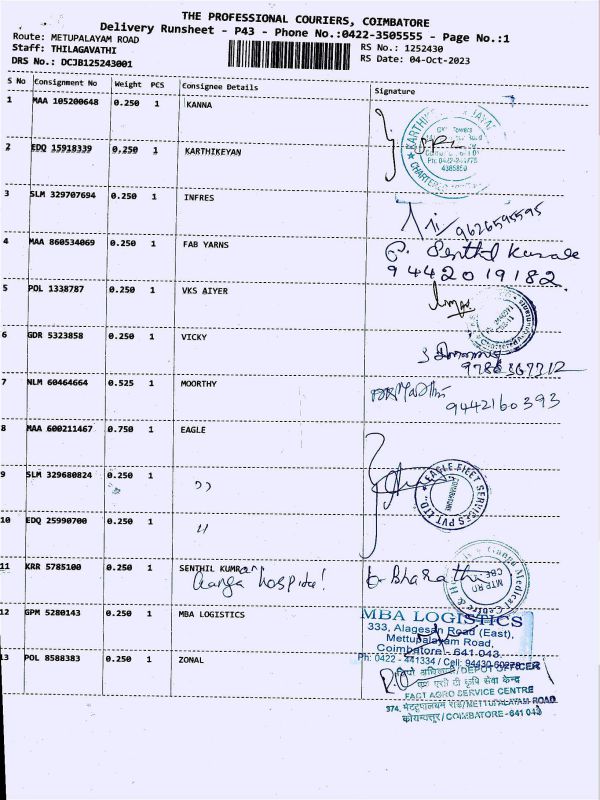 THE PROFESSIONAL COURIERS, COIMBATORE
Delivery Runsheet - P43 - Phone No.:0422-3505555 - Page No.:1
Route: METUPALAYAM ROAD
RS No.: 1252430
Staff: THILAGAVATHI
RS Date: 04-Oct-2023
DRS No.: DCJB125243001
S No Consignment No Weight PCS Consignee Details Signature
1 MAA 105200648 0.250 1 KANNA
2 EDQ 15918339 0.250 1 KARTHIKEYAN
3 SLM 329707694 0.250 1 INFRES
9626595595
4 MAA 860534069 0.250 1 FAB YARNS
P. Senthil Kumar
9442019182.
5 POL 1338787 0.250 1 VKS AIYER
6 GDR 5323858 0.250 1 VICKY
9786367712
7 NLM 60464664 0.525 1 MOORTHY
9442160393
8 MAA 600211467 0.750 1 EAGLE
9 SLM 329680824 0.250 1 ,,
EAGLE FLEET SERVICES PVT. LTD.
COIMBATORE
10 EDQ 25990700 0.250 1 ,,
11 KRR 5785100 0.250 1 SENTHIL KUMRAN
Ganga hospital
Bharathi
MTP RD
CBE
12 GPM 5280143 0.250 1 MBA LOGISTICS
MBA LOGISTICS
333, Alagesan Road (East),
Mettupalayam Road,
Coimbatore - 641 043.
Ph: 0422 - 441334 / Cell: 94430
13 POL 8588383 0.250 1 ZONAL
डिपो अधिकारी/DEPOT OFFICER
एफ ए सी टी कृषि सेवा केन्द्र
FACT AGRO SERVICE CENTRE
374, मेट्टुपालयम रोड/METTUPALAYAM ROAD
कोयम्पत्तूर/COIMBATORE-641 043